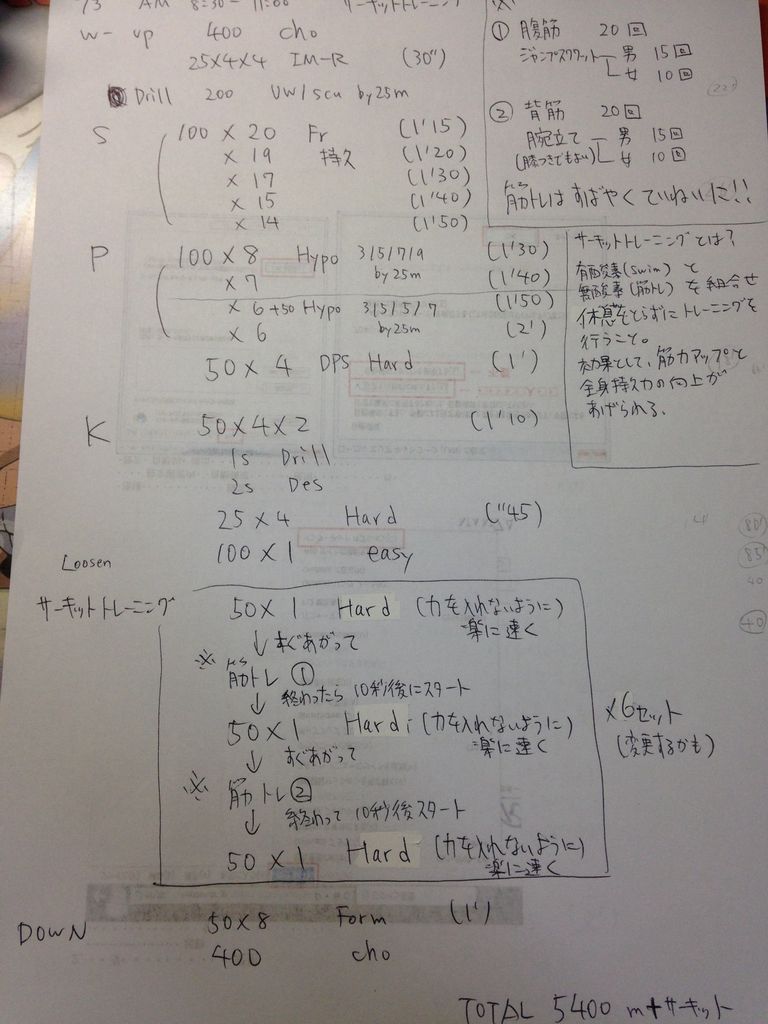 AM 8:30 - 11:00 サーキットトレーニング
W-up 400 cho
25×4×4 IM-R (30")
Drill 200 UW/scu by25m
S 100×20 Fr (1'15)
×19 持久 (1'20)
×17 (1'30)
×15 (1'40)
×14 (1'50)
P 100×8 Hypo 3/5/7/9 by25m (1'30)
×7 (1'40)
×6+50 Hypo 3/5/5/7 by25m (1'50)
×6 (2')
50×4 DPS Hard (1')
K 50×4×2 (1'10)
1s Drill
2s Des
25×4 Hard ("45)
100×1 easy
Loosen
サーキットトレーニング
50×1 Hard (力を入れないように)
楽に速く
↓すぐあがって
※筋トレ①
↓終わったら10秒後にスタート
50×1 Hard (力を入れないように)
楽に速く
↓すぐあがって
※筋トレ②
↓終わって10秒後スタート
50×1 Hard (力を入れないように)
楽に速く
×6セット
(変更するかも)
DOWN 50×8 Form (1')
400 cho
TOTAL 5400m+サーキット
※
①腹筋 20回
ジャンプスクワット 男 15回
女 10回
②背筋 20回
腕立て 男 15回
(膝つきでもよい) 女 10回
筋トレはすばやくていねいに!!
サーキットトレーニングとは?
有酸素(swim)と
無酸素(筋トレ)を組合せ
休憩をとらずにトレーニングを
行うこと。
効果として、筋力アップと
全身持久力の向上が
あげられる。